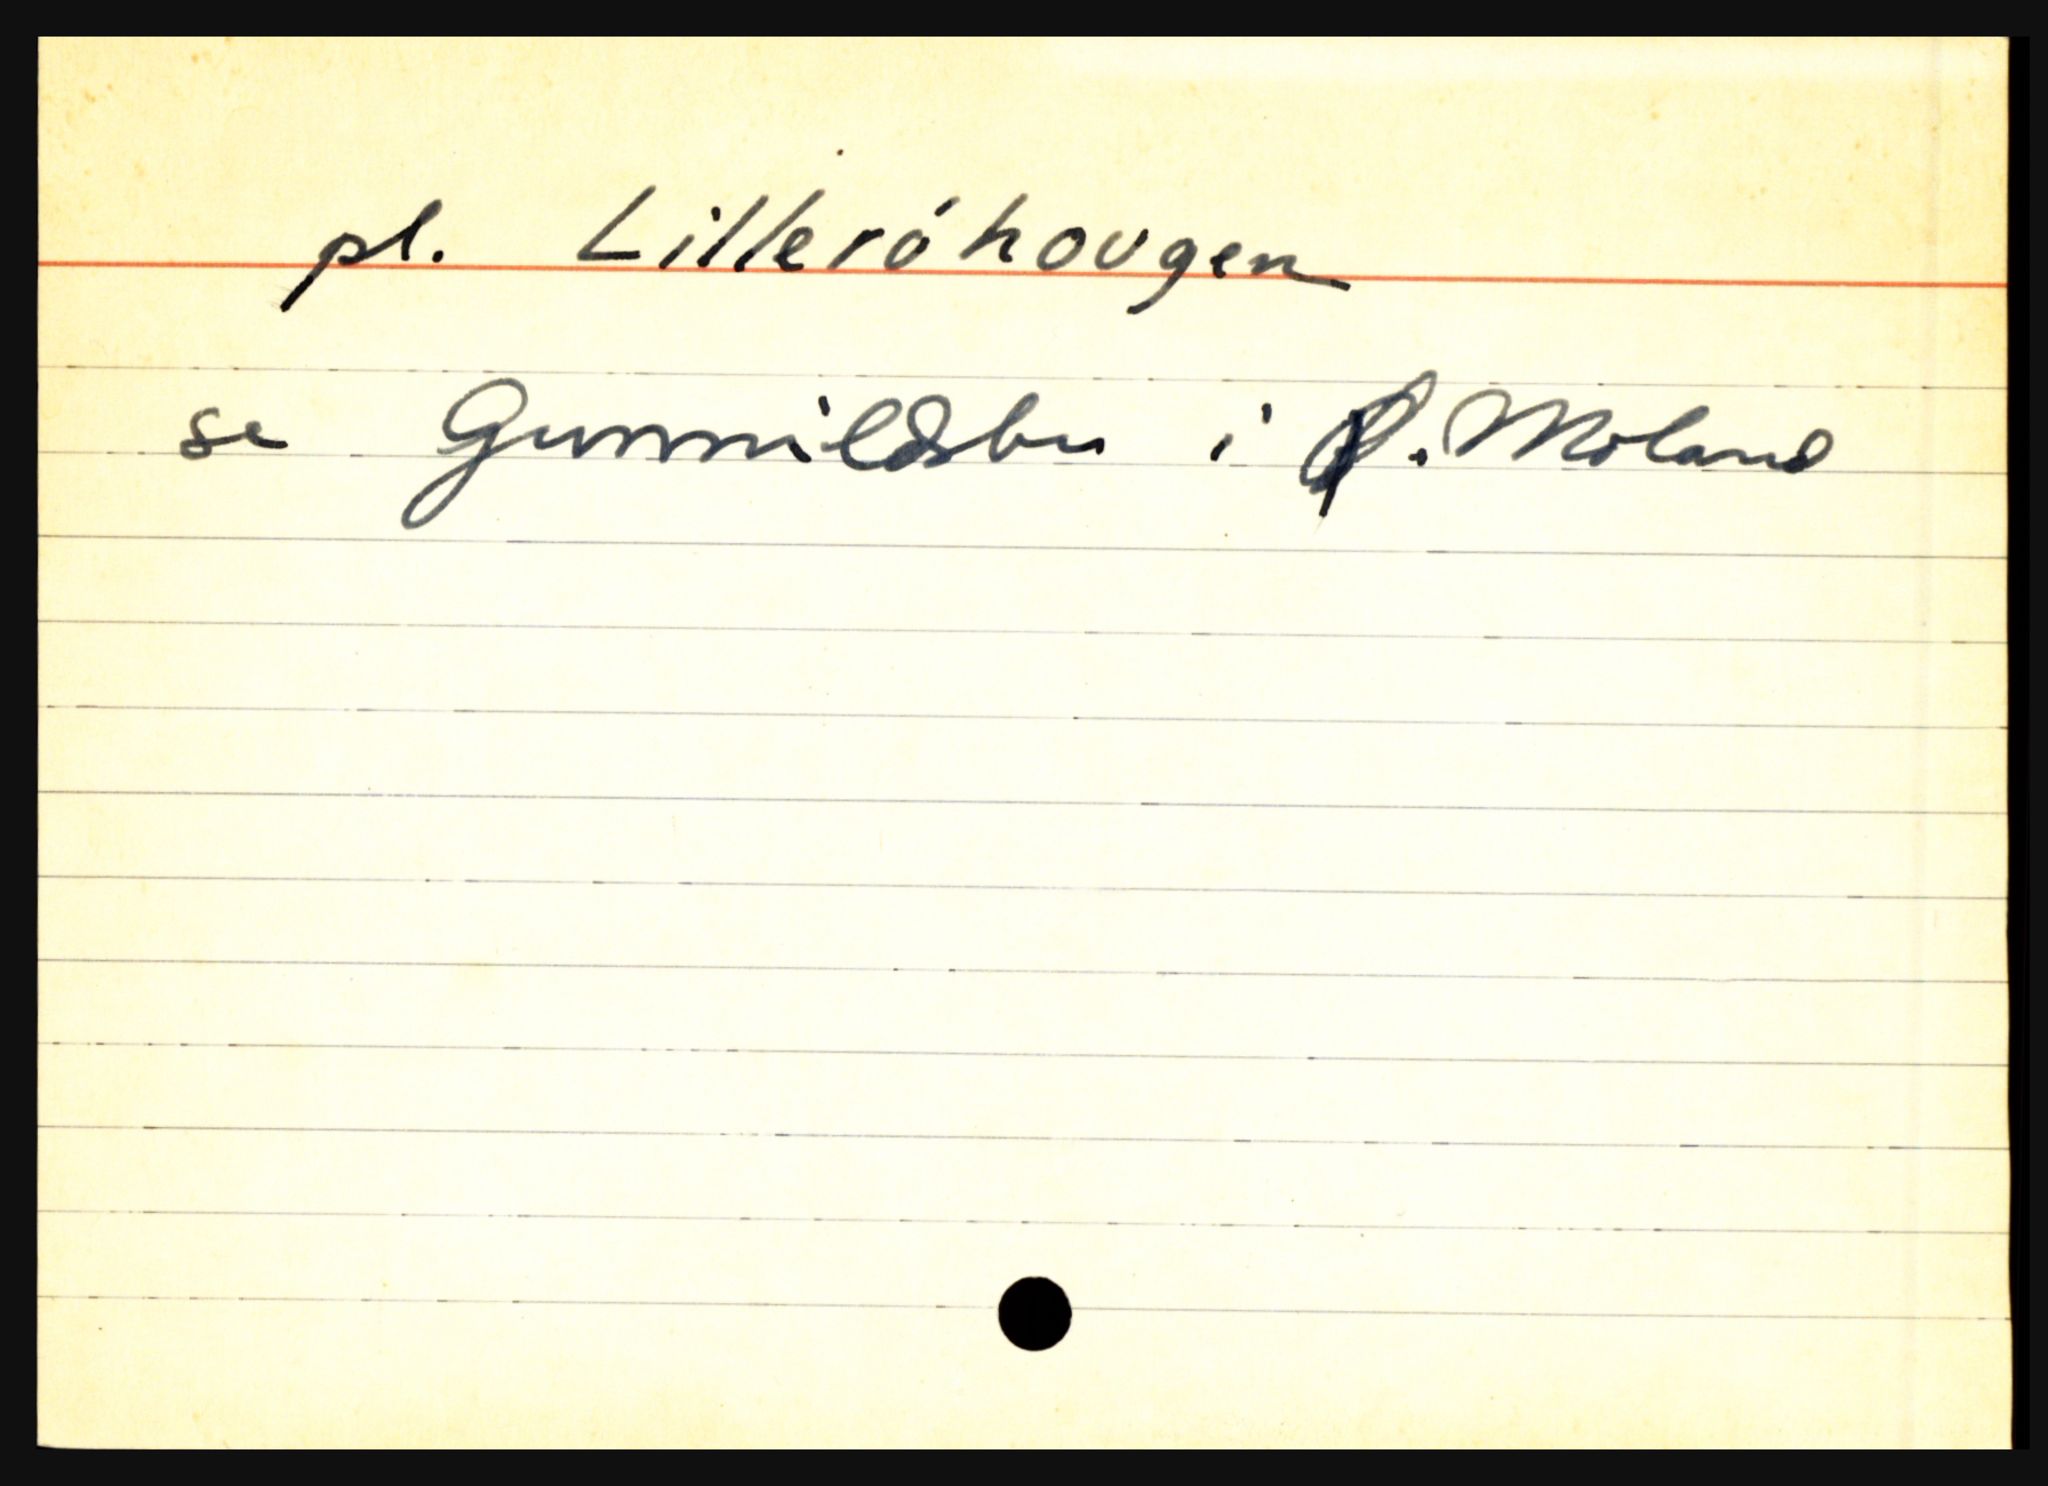 pl. Lilleróhougen
se Gunnildsbu i Ø. Moland